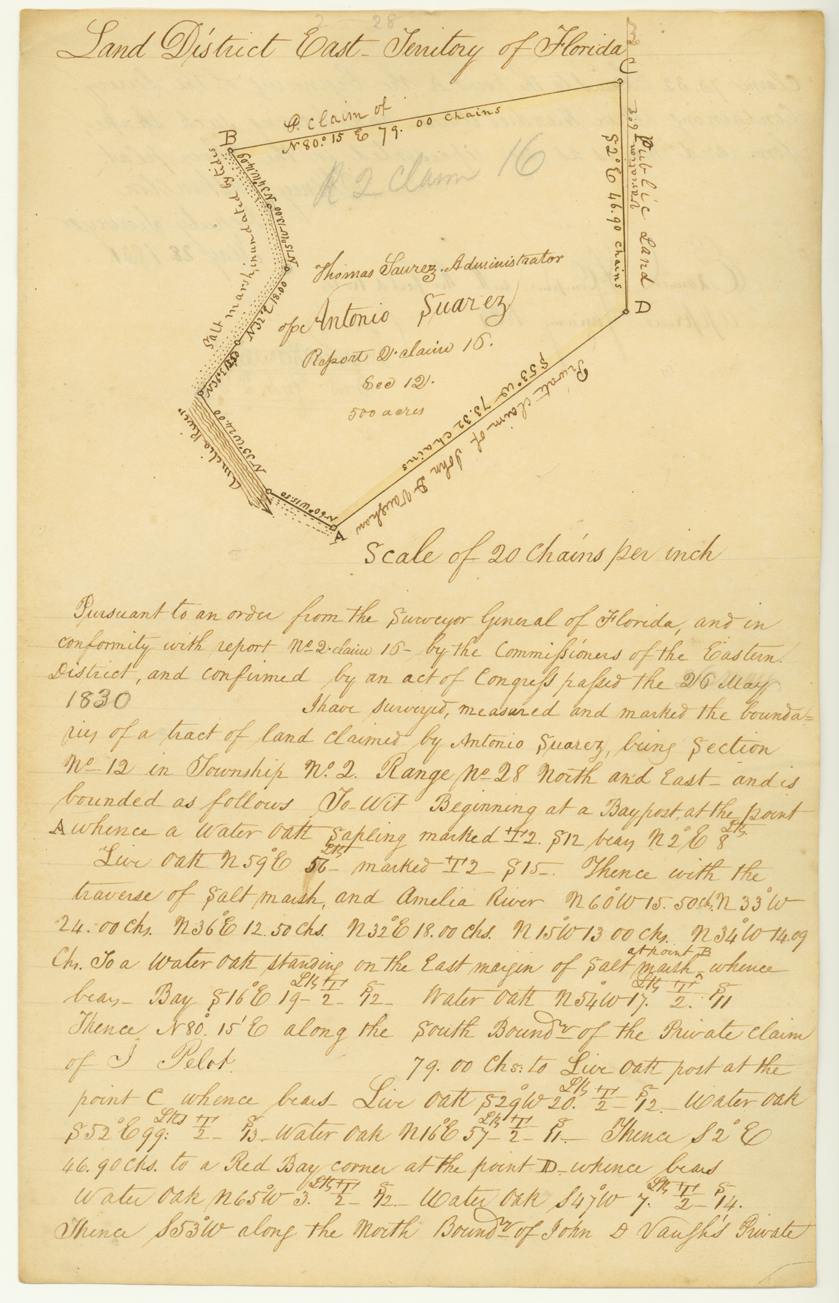 Land District East - Territory of Florida
C
B
P. claim of
N 80° 15 E 79. 00 Chains
R 2 Claim 16
S 2° E 46.90 Chains
Public Land
Variation
Salt marsh, inundated by tides
N 34 W 14.09
N 15° W 13.00
N 32 E 18.00
Thomas Saurez. Administrator
of Antonio Suarez
Report 2. claim 16.
Sec 12.
500 acres
D
S 53° W 73.32 Chains
Private Claim of John D Vaughan
Amelia River
N 33° W 24.00
N 60° W 15.50
A
Scale of 20 Chains per inch
Pursuant to an order from the Surveyor General of Florida, and in
conformity with report No 2. claim 16 - by the Commissioners of the Eastern
District, and confirmed by an act of Congress passed the 26 May
1830 I have surveyed, measured and marked the bounda-
ries of a tract of land claimed by Antonio Suarez, being Section
No 12 in Township No. 2. Range No 28 North and East - and is
bounded as follows To-Wit Beginning at a Bay post, at the point
A whence a Water Oak Sapling marked T 2. S 12 bears N 2° E 8 Lks
Live Oak N 59° E 56 Lks - marked T 2 - S 15 -. Thence with the
traverse of Salt marsh, and Amelia River N 60° W 15. 50 ch. N 33° W
24. 00 Chs. N 36° E 12. 50 Chs. N 32° E 18. 00 Chs. N 15° W 13 00 Chs. N 34° W 14.09
Chs. To a Water Oak standing on the East margin of Salt marsh, at point B whence
bears - Bay S 16° E 19 - Lks T 2 - S 12 Water Oak N 54° W 17. Lks T 2. S 11
Thence N 80. 15' E along the South Boundry of the Private Claim
of J Pelot. 79. 00 Chs: to Live Oak post at the
point C whence bears Live Oak S 29° W 20. Lks T 2 - S 12 - Water Oak
S 52° E 99: Lks T 2 - S 13 - Water Oak N 16° E 57 - Lks T 2 - S 11 - Thence S 2° E
46. 90 Chs. to a Red Bay corner at the point D - whence bears
Water Oak N 65° W 3. Lks T 2 - S 12 - Water Oak S 47° W 7. Lks T 2 - S 14.
Thence S 53° W along the North Boundry of John D Vaugh's Private